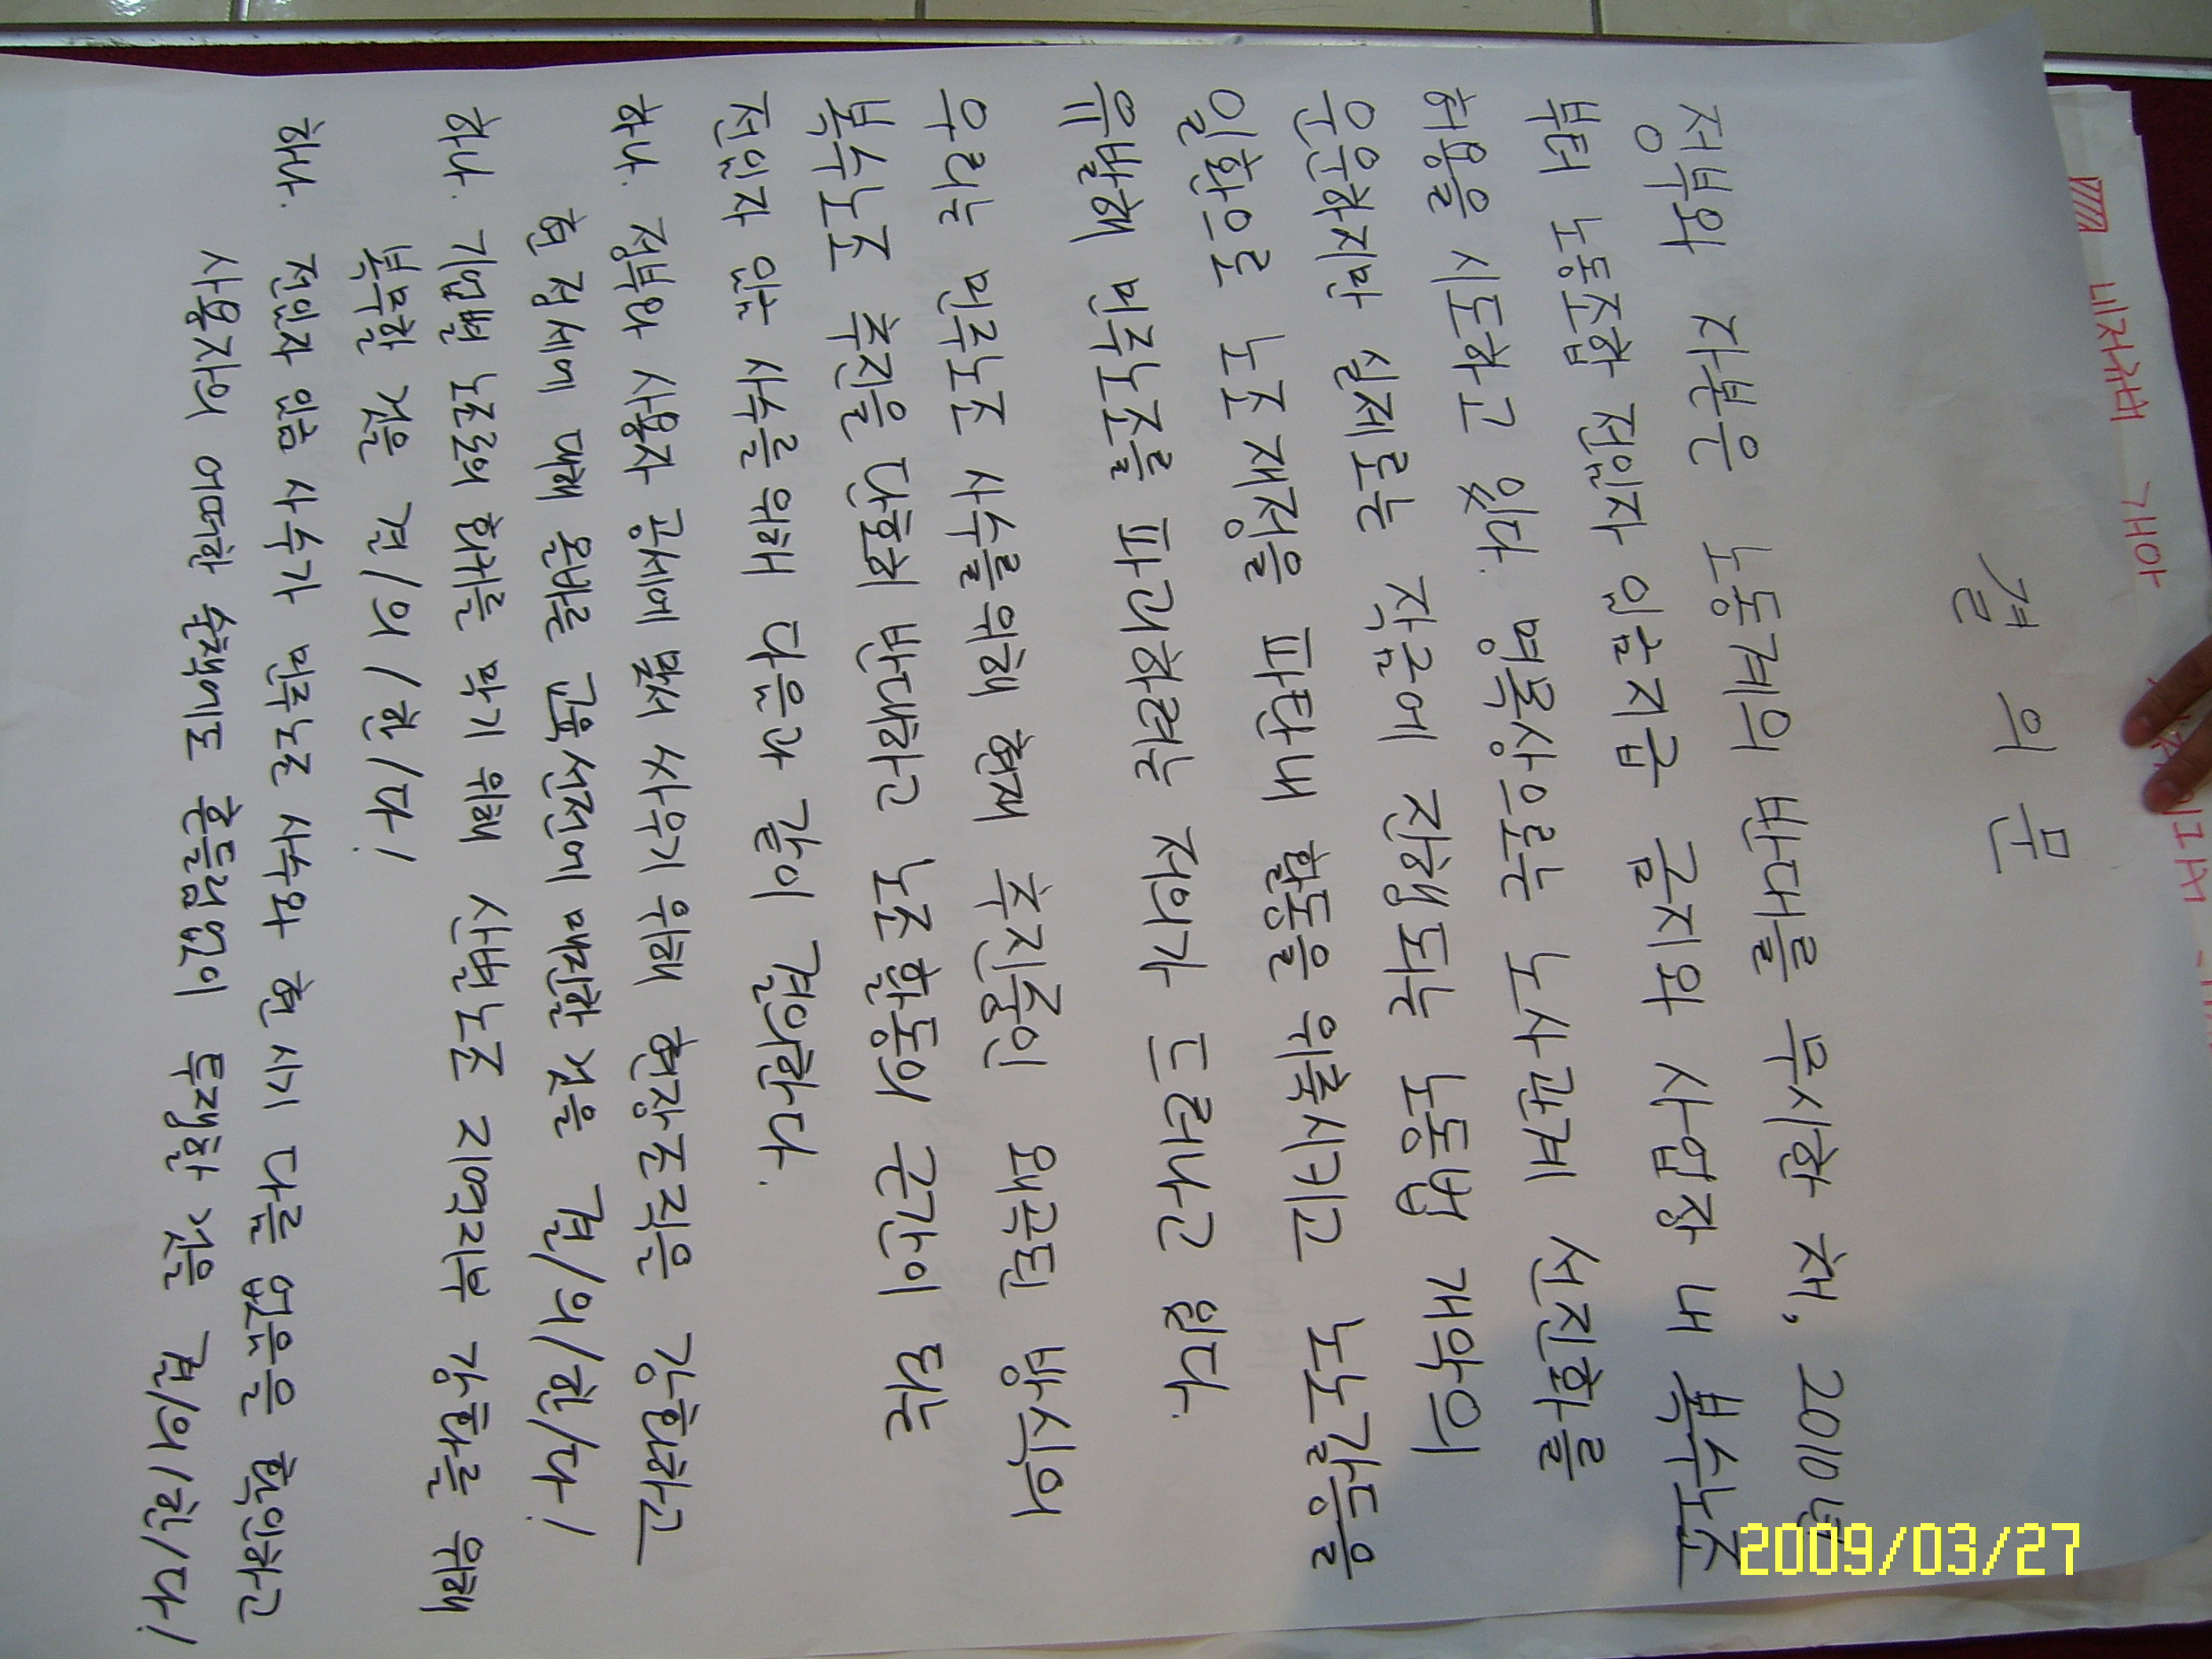 결 의 문
정부와 자본은 노동계의 반대를 무시한 채, 2010년
부터 노동조합 전임자 임금지급 금지와 사업장 내 복수노조
허용을 시도하고 있다. 명목상으로는 노사관계 선진화를
운운하지만 실제로는 작년에 진행되는 노동법 개악의
일환으로 노조 재정을 파탄내 활동을 위축시키고 노노갈등을
유발해 민주노조를 파괴하려는 저의가 드러나고 있다.
우리는 민주노조 사수를위해 현재 추진중인 왜곡된 방식의
복수노조 추진을 단호히 반대하고 노조활동의 근간이 되는
전임자 임금 사수를 위해 다음과 같이 결의한다.
하나. 정부와 사용자 공세에 맞서 싸우기 위해 현장조직을 강화하고
현 정세에 대해 올바른 교육선전에 매진할 것을 결/의/한/다!
하나. 기업별 노조의 한계를 막기 위해 산별노조 지역지부 강화를 위해
복무할 것을 결/의/한/다!
하나. 전임자 임금 사수가 민주노조 사수와 현 시기 다름 없음을 확인하고
사용자의 어떠한 술책에도 흔들림없이 투쟁할 것을 결/의/한/다!
네저네버 개아
2009/03/27